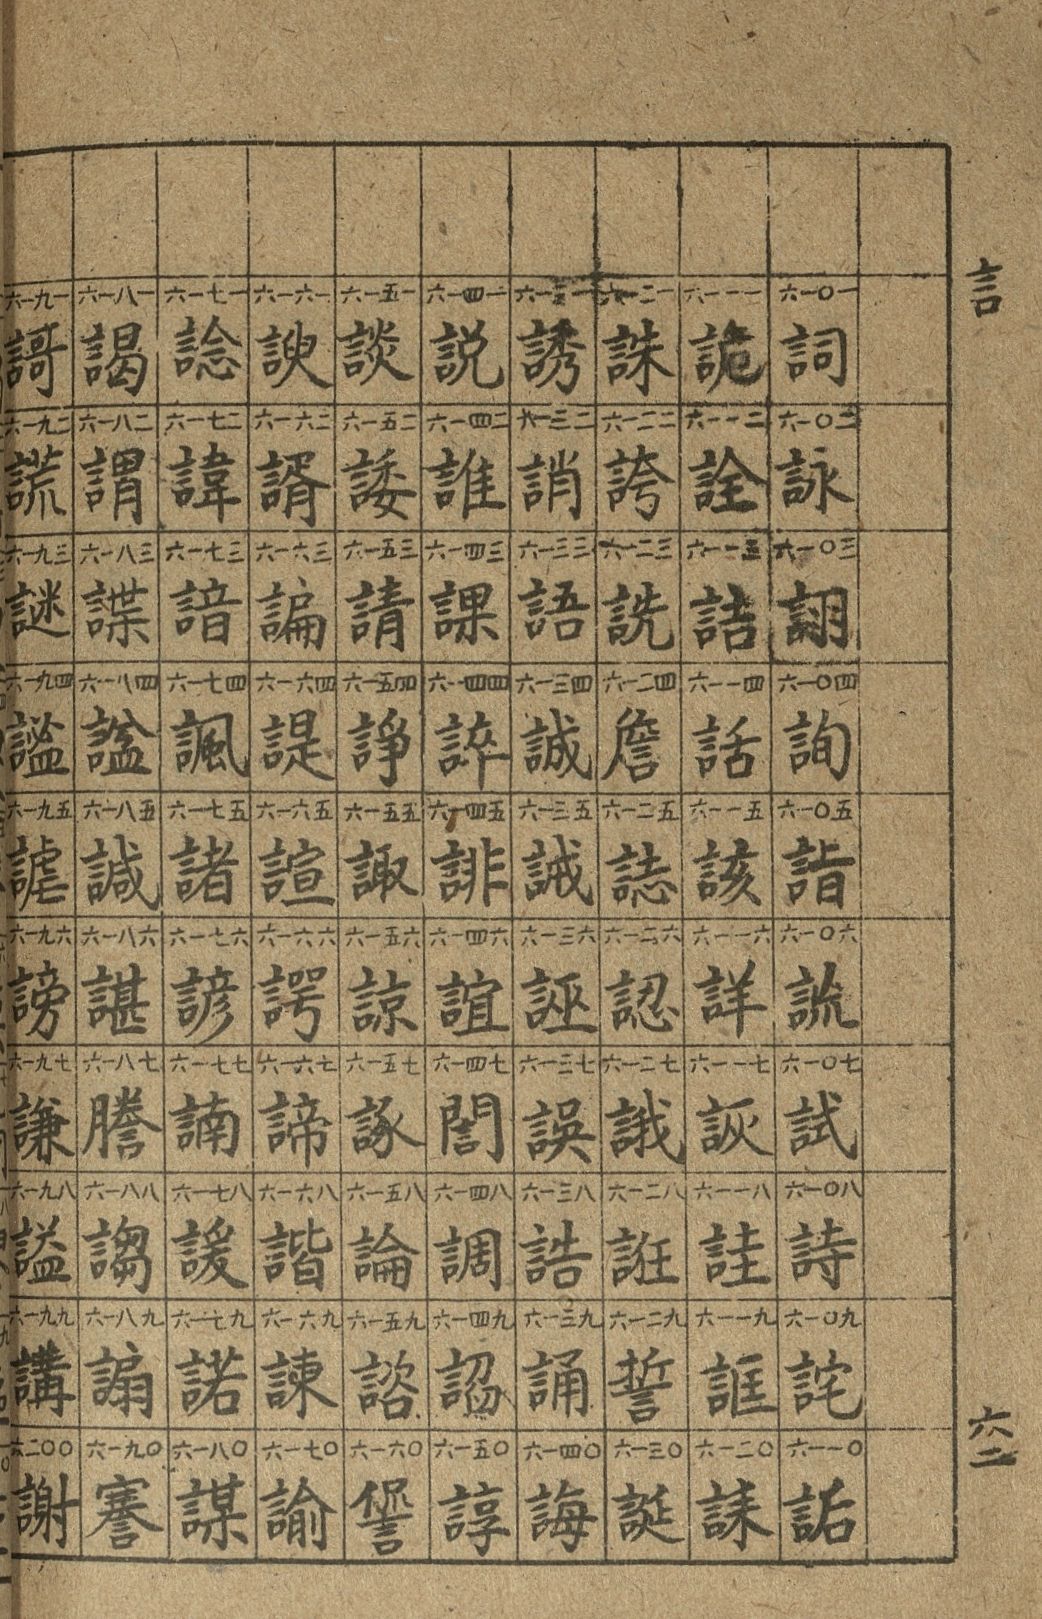 言
六一〇一 詞 六一〇二 詠 六一〇三 詡 六一〇四 詢 六一〇五 詣 六一〇六 六一〇七 試 六一〇八 詩 六一〇九 詫 六一一〇 詬
六一一一 詭 六一一二 詮 六一一三 詰 六一一四 話 六一一五 該 六一一六 詳 六一一七 詼 六一一八 詿 六一一九 誆 六一二〇 誄
六一二一 誅 六一二二 誇 六一二三 詵 六一二四 詹 六一二五 誌 六一二六 認 六一二七 誐 六一二八 誑 六一二九 誓 六一三〇 誕
六一三一 誘 六一三二 誚 六一三三 語 六一三四 誠 六一三五 誡 六一三六 誣 六一三七 誤 六一三八 誥 六一三九 誦 六一四〇 誨
六一四一 説 六一四二 誰 六一四三 課 六一四四 誶 六一四五 誹 六一四六 誼 六一四七 誾 六一四八 調 六一四九 諂 六一五〇 諄
六一五一 談 六一五二 諉 六一五三 請 六一五四 諍 六一五五 諏 六一五六 諒 六一五七 諑 六一五八 論 六一五九 諮 六一六〇 諐
六一六一 諛 六一六二 諝 六一六三 諞 六一六四 諟 六一六五 諠 六一六六 諤 六一六七 諦 六一六八 諧 六一六九 諫 六一七〇 諭
六一七一 諗 六一七二 諱 六一七三 諳 六一七四 諷 六一七五 諸 六一七六 諺 六一七七 諵 六一七八 諼 六一七九 諾 六一八〇 謀
六一八一 謁 六一八二 謂 六一八三 諜 六一八四 諡 六一八五 諴 六一八六 諶 六一八七 謄 六一八八 謅 六一八九 謆 六一九〇 謇
六一九一 謌 六一九二 謊 六一九三 謎 六一九四 謐 六一九五 謔 六一九六 謗 六一九七 謙 六一九八 謚 六一九九 講 六二〇〇 謝
六二